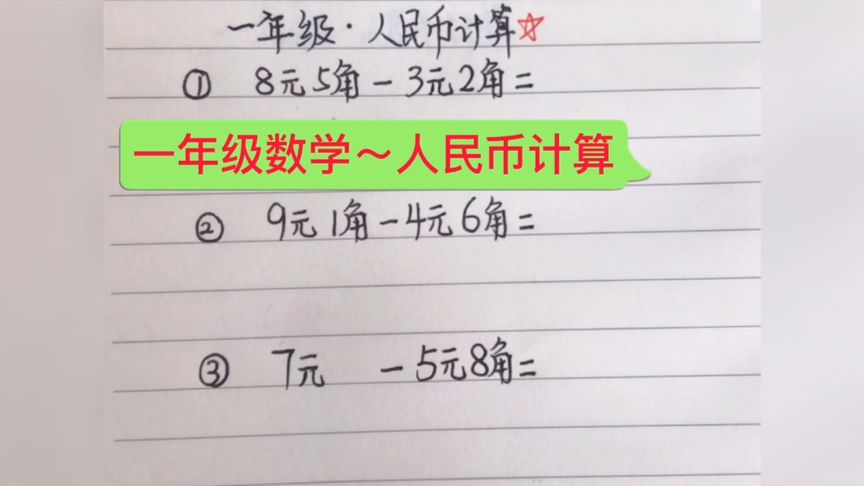 一年级·人民币计算☆
① 8元5角-3元2角=
一年级数学～人民币计算
② 9元1角-4元6角=
③ 7元 -5元8角=